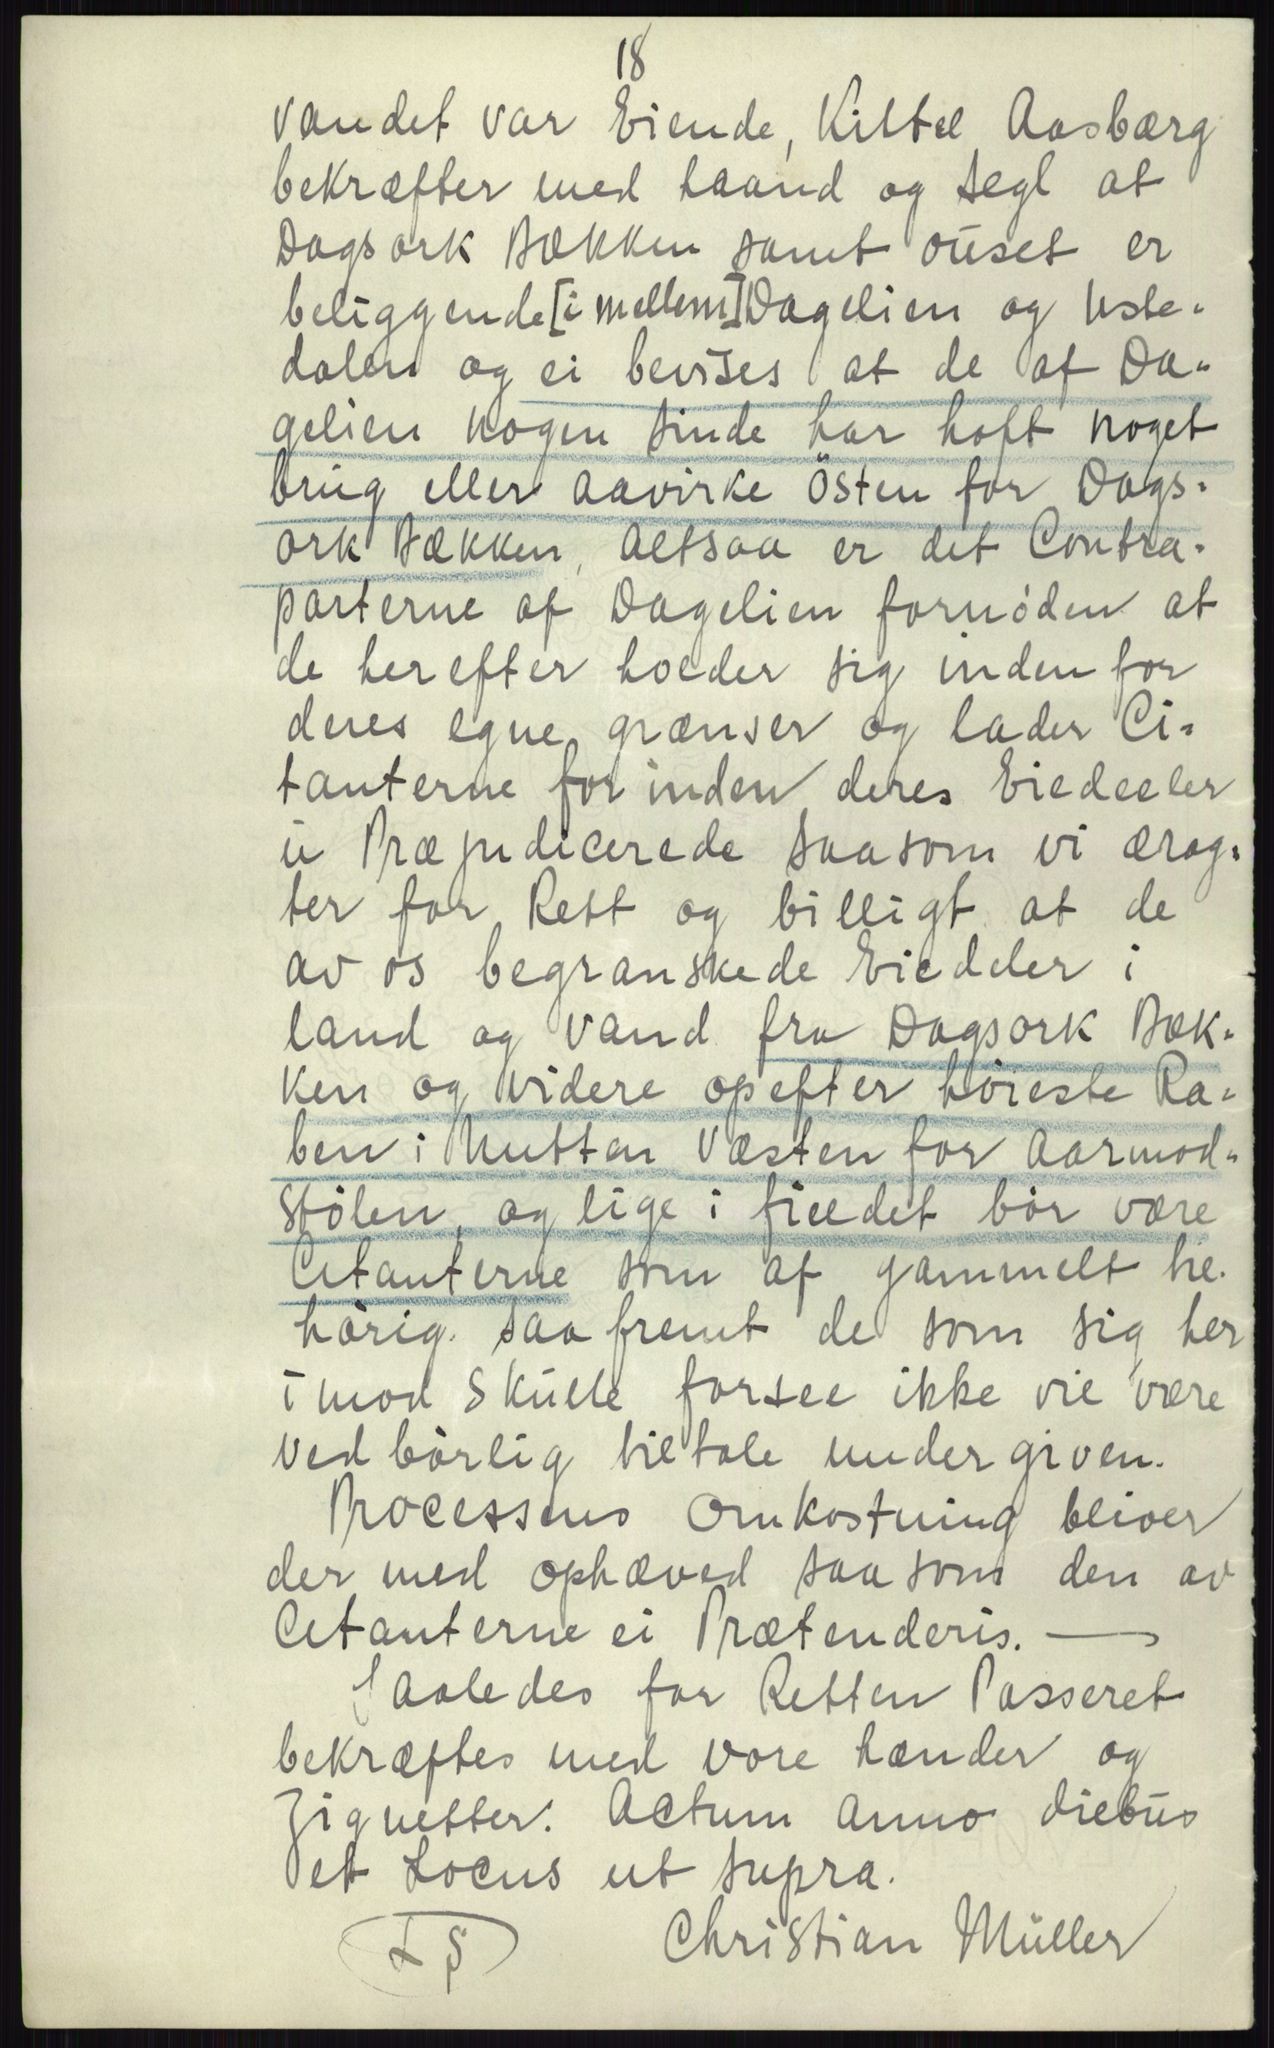 18
vandet var Eiende, Kittel Aasbærg
bekræfter med haand og segl at
Dagsork Bækken samt ouset er
beliggende [i mellem] Dagelien og Uste-
dalen og ei bevises at de af Da-
gelien nogen sinde har haft noget
brug eller aavirke Östen for Dags-
ork Bækken, altsaa er det Contra-
parterne af Dagelien fornöden at
de herefter holder sig inden for
deres egne grænser og lader Ci-
tanterne for inden deres Eiedeeler
u Præjudicerede saasom vi ærag-
ter for Rett og billigt at de
av os begranskede Eiedeler i
land og vand fra Dagsork Bæk-
ken og videre opefter höieste Ra-
ben i Nutten Væsten for Aarmod-
stölen, og lige i fieldet bör være
Citanterne som af gammelt he-
hörig. saa fremt de som sig her
imod Skulle forsee ikke vil være
ved börlig tiltale under given.
Processens Omkostning bliver
der med ophæved saasom den av
Citanterne ei Prætenderis. —
Saaledes for Retten Passeret
bekræftes med vore hænder og
Zignetter. Actum Anno diebus
et Locus ut supra.
L S Christian Müller